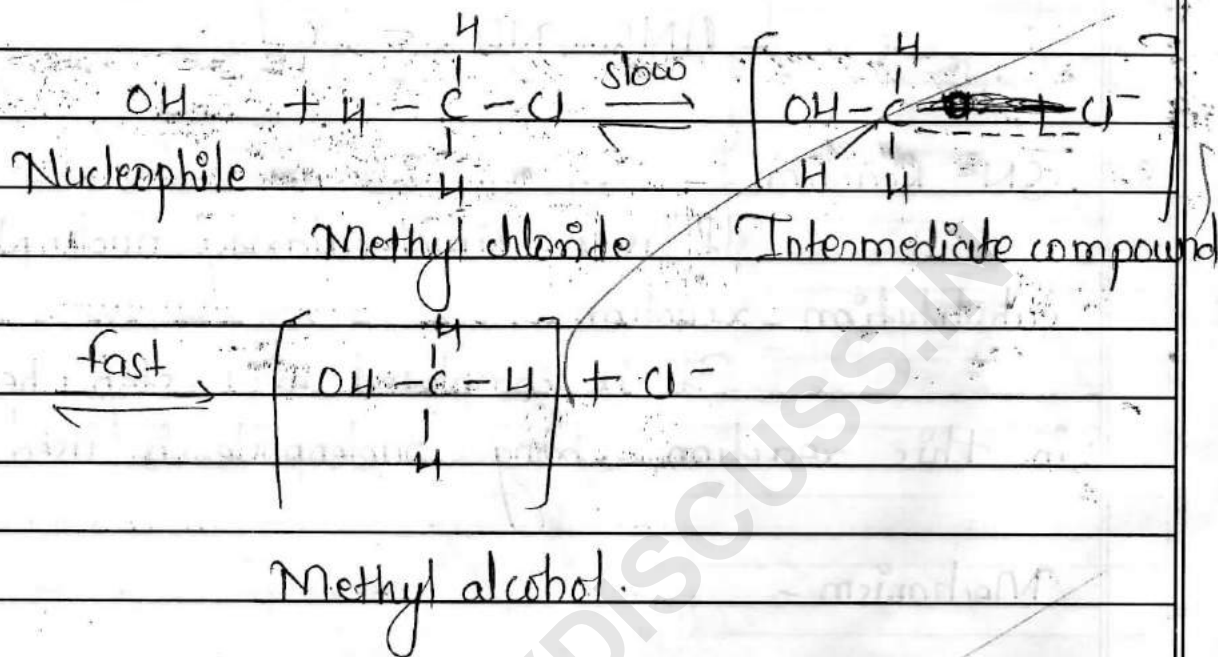 H H
OH + H - C - Cl slow ⇌ [ OH - C - - - - Cl⁻ ]
Nucleophile H H H
Methyl chloride Intermediate compound
H
fast ⇌ [ OH - C - H ] + Cl⁻
H
Methyl alcohol.